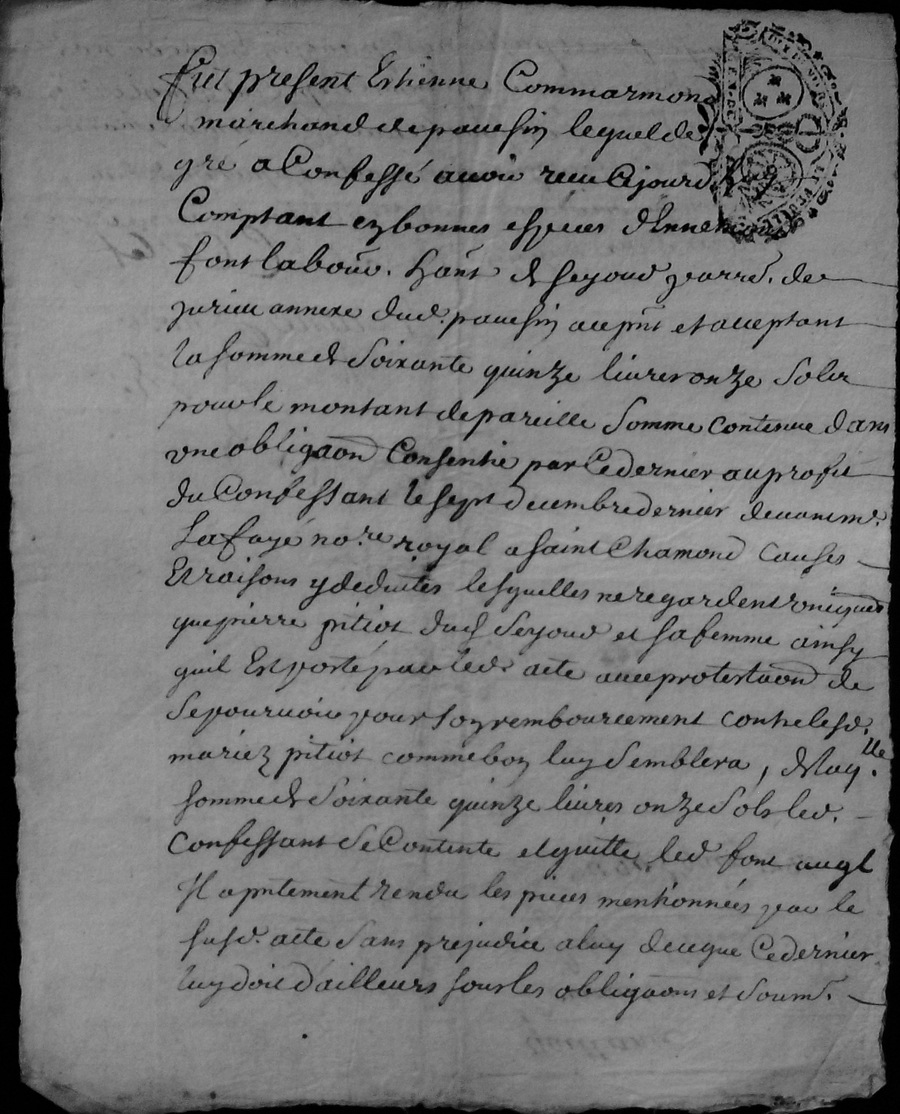 Fut present Estienne Commarmond
marchand de pauesin lequel de
gré a Confessé auoir receu Cejourdhuy
Comptant en bonnes especes d'Ennem
font labour. hant de seyoud parr.e de
jurieu annexe dud. pauesin acep.nt et acceptant
la somme de Soixante quinze liures onze Sols
pour le montant de pareille Somme contenue dans
vne obligaon Consentie par Ce dernier au profit
du Confessant le sept decembre dernier deuant m.e
La faye no.re royal a saint Chamond causes
Et raisons y deduites lesquelles ne regardent vniquem.t
que pierre pitiot dud Seyoud et sa femme ainsy
quil Est porté par led. acte auec protestaon de
Se pouruoir pour son remboursement contre lesd.
mariez pitiot comme bon luy Semblera, de laq.lle
somme de Soixante quinze liures onze Sols led.
Confessant Se Contente et quitte led font auql
Il a pntement rendu les pieces mentionnées par le
susd. acte Sans prejudice a luy de ce que Ce dernier
luy doit d'ailleurs sur les obligaons et soum.